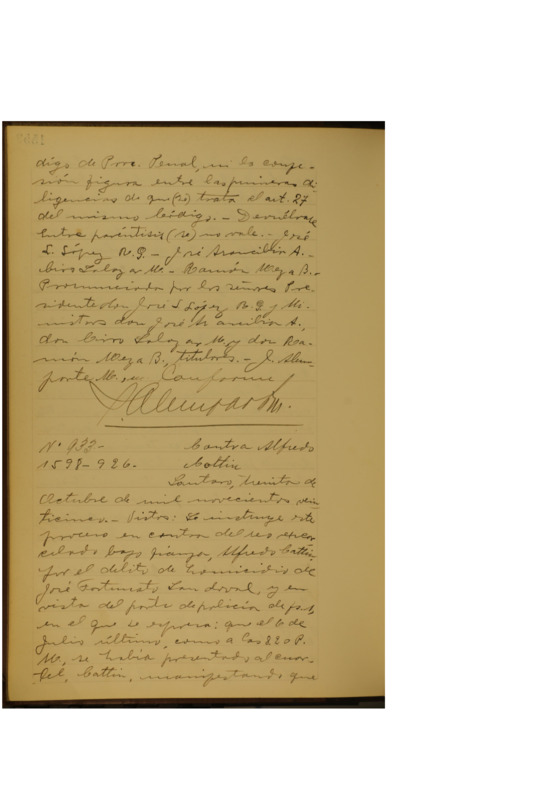 digo de Proc. Penal, ni la confe-
sión figura entre las primeras di-
ligencias de que (se) trata el art. 27
del mismo Código. - Devuélvase
Entre paréntisis (se) no vale. - José
L. López R. G. - José Arancibia A. -
Ciro Salazar M. - Ramón Meza B. -
Pronunciada por los señores Pre-
sidente don José L López R. G y Mi-
nistros don José Arancibia A.,
don Ciro Salazar M. y don Ra-
món Meza B., titulares. - J. Alem-
parte M., Conforme
J. Alemparte M.
Nº 933-
Contra Alfredo
1598-926.
Cattin
Lautaro, treinta de
Octubre de mil novecientos vein
ticinco. - Vistos: Se instruye este
proceso en contra del reo excar
celado bajo fianza, Alfredo Cattin
por el delito de homicidio de
José Fortunato Sandoval, y en
vista del parte de policía de fs. 1,
en el que se espresa: que el 6 de
Julio último, como a las 8.20 P.
M., se había presentado al cuar-
tel, Cattin, manifestando que